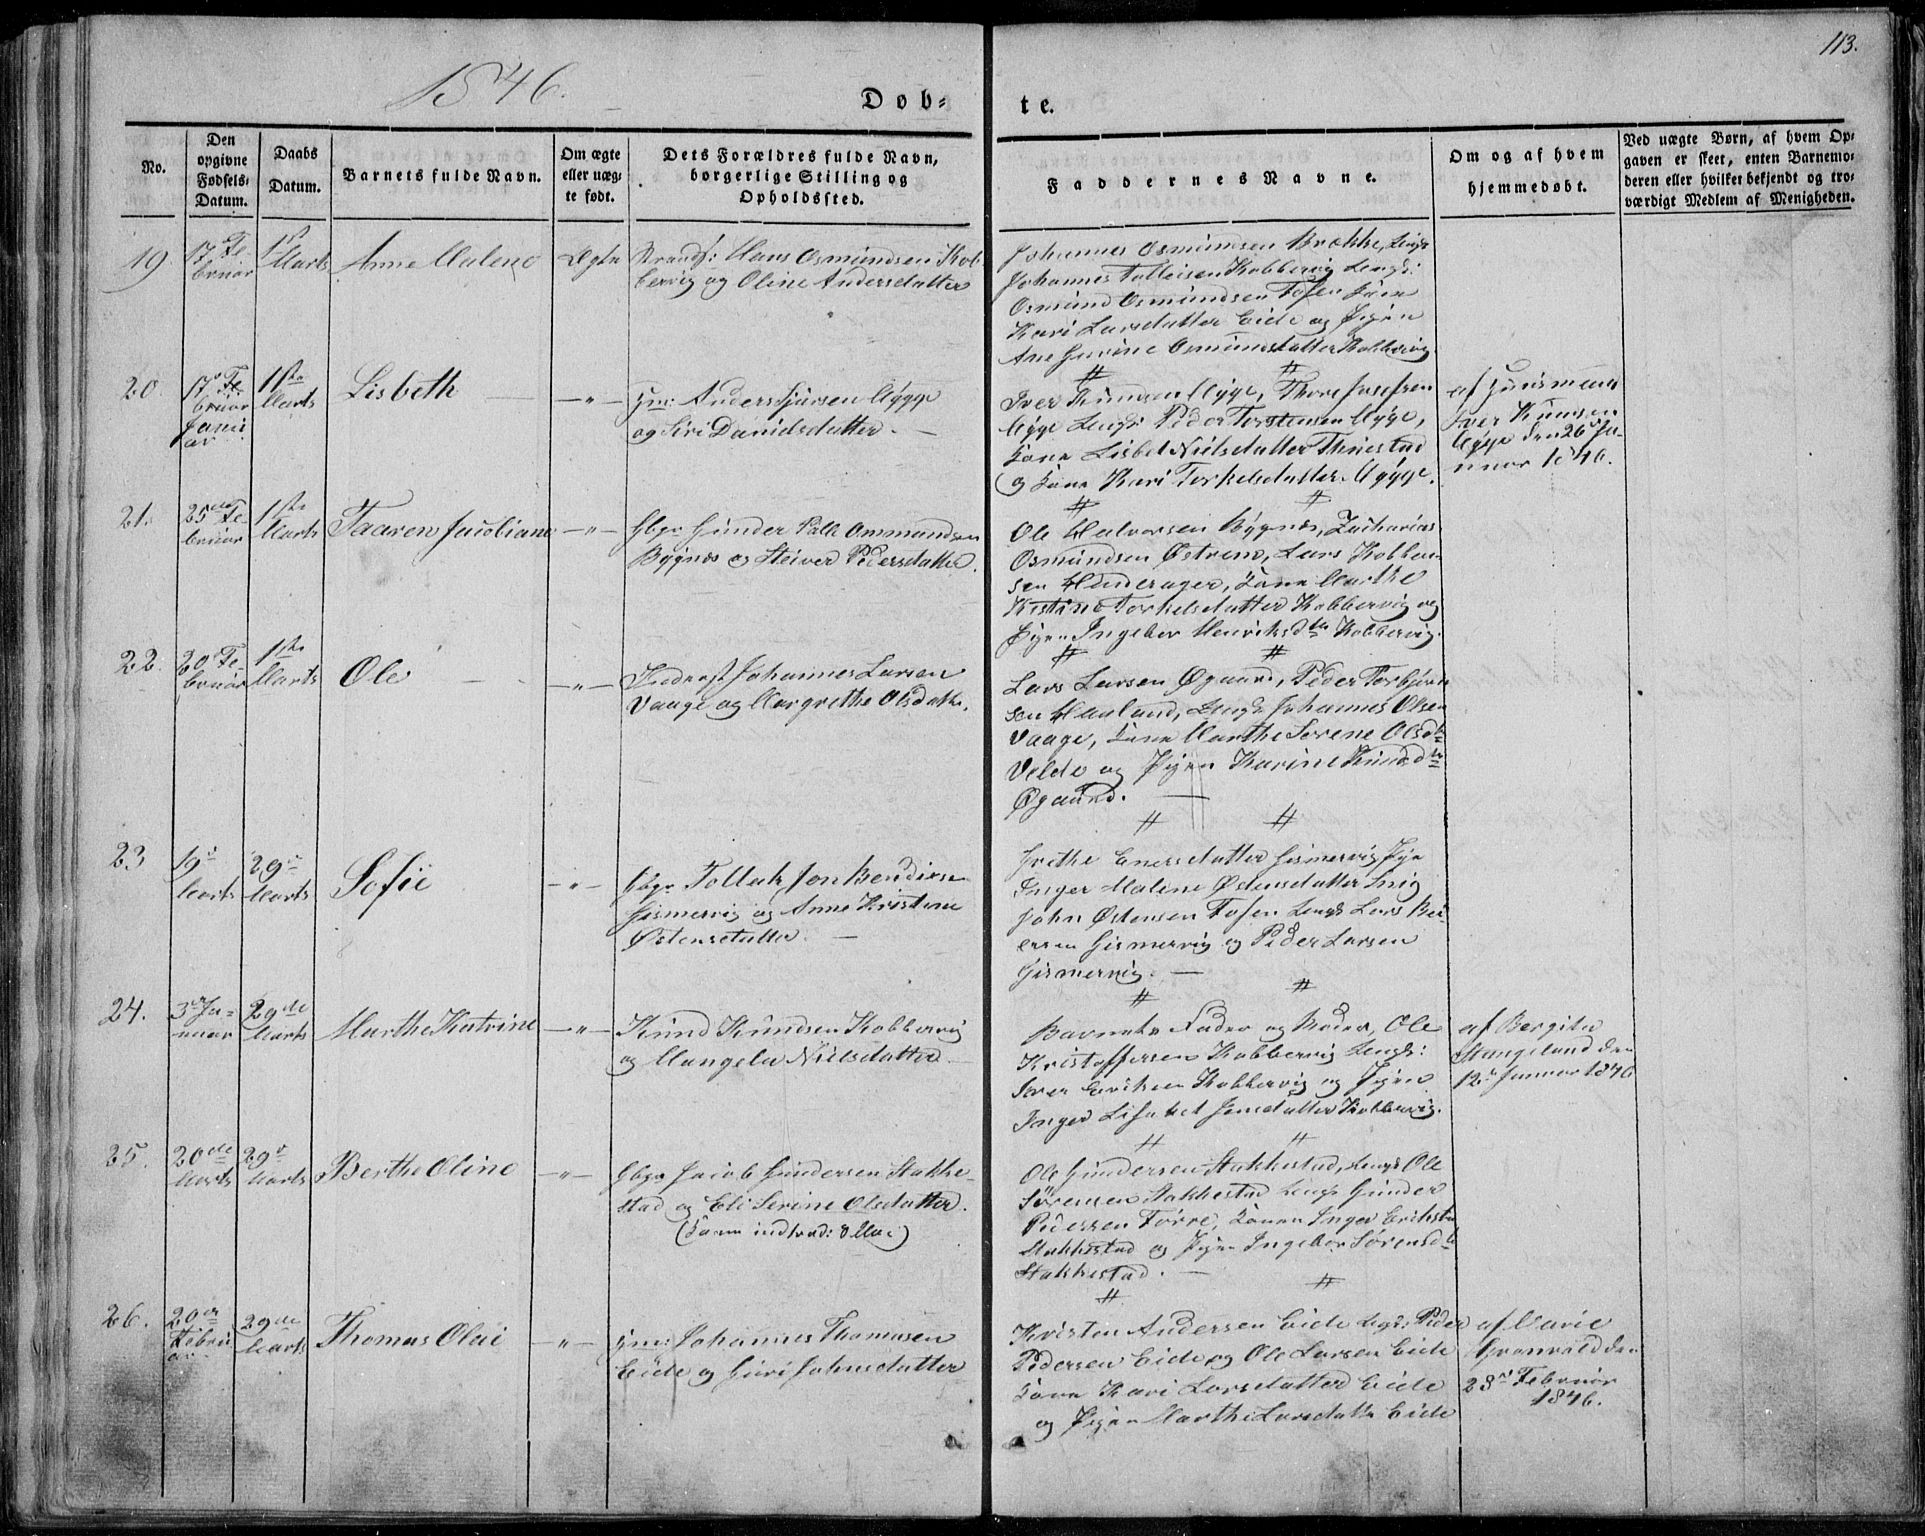 113.
1846.
Døb=
te.
No.
Den opgivne Fødsels-Datum.
Daabs Datum.
Barnets fulde Navn.
Om ægte eller uægte født.
Dets Forældres fulde Navn, borgerlige Stilling og Opholdssted.
Faddernes Navne.
Om og af hvem hjemmedøbt.
Ved uægte Børn, af hvem Opgaven er skeet, enten Barnemoderen eller hvilket bekjendt og troværdigt Medlem af Menigheden.
19
17de Februar
1ste Marts
Anne Malene
Ægte
Strands: Hans Osmundsen Kobbervig og Oline Andersdatter
Johannes Osmundsen Brekke, Ungk
Johannes Tolleisen Kobbervig Ungk:
Osmund Osmundsen Fosen Kone
Kari Larsdatter Eide og Pigen
Ane Gurine Osmundsdatter Kobbervig
20.
17de Februar Januar
1ste Marts
Lisbeth
— " —
Hm: Anders Sjursen Mygge
og Siri Danielsdatter. —
Iver Knudsen Mygge, Thore Josefsen
Mygge Ungk: Peder Torstensen Mygge,
Kone Lisbet Nielsdatter Thuestad
og Kone Kari Torkelsdatter Mygge.
af Huusmand
Iver Knudsen
Mygge den 26de Januar 1846.
21.
25de Februar
1ste Marts
Taaren Jacobiane
— " —
Gbgr Gunder Falk Ommundsen
Bygnes og Steiver Pedersdatter.
Ole Halvorsen Bygnes, Zacharias
Osmundsen Østrem, Lars
Kone Marthe
Kristine Torkelsdatter Kobbervig og
Pigen Ingebor Henriksdtr Kobbervig.
22.
20de Februar
1ste Marts
Ole
— " —
Inderst Johannes Larsen
Vaage og Margrethe Olsdatter.
Lars Larsen Øgaard, Peder Torbjørnsen
Haaland, Ungk Johannes Olsen
Vaage, Kone Marthe Serene Olsdtr
Velde og Pigen Karine Knudsdtr
Øgaard. —
23
19de Marts
29de Marts
Sofie
— " —
Gbgr Tollak Jon Bendixsen
Gismervig og Anne Kristine
Østensdatter. —
Grethe Enersdatter Gismervig Pige
Inger Malene Østensdatter
John Østensen Fosen Ungk Lars
Gismervig og Peder Larsen
Gismervig. —
24.
3de Januar
29de Marts
Marthe Katrine
— " —
Knud Knudsen Kobbervig
og Mangela Nielsdatter —
Barnets Fader og Moder, Ole
Kristoffersen Kobbervig Ungk:
Iver Eriksen Kobbervig og Pigen
Inger Lisabet Jensdatter Kobbervig.
af Bergita
Stangeland den
12te Januar 1846
25.
20de Marts
29de Marts
Berthe Oline
— " —
Gbgr Jacob Gundersen Stakkestad og Eli Serine Olsdatter.
(Kone indtraad: 8 Mai)
Ole Gundersen Stakkestad, Ungk Ole
Sørensen Stakkestad Ungk Gunder
Pedersen Førre, Konen Inger Eriksdtr
Stakkestad og Pigen Ingebor Sørensdtr
Stakkestad. —
26.
20de Februar
29de Marts
Thomas Olai
— " —
Hm: Johannes Thomasen
Eide og Guri Johnsdatter
Kristen Andersen Eide Ungk: Peder
Pedersen Eide og Ole Larsen Eide
Kone Kari Larsdatter Eide
og Pigen Marthe Larsdatter Eide
af Marie
Grønvold den
28de Februar
1846.